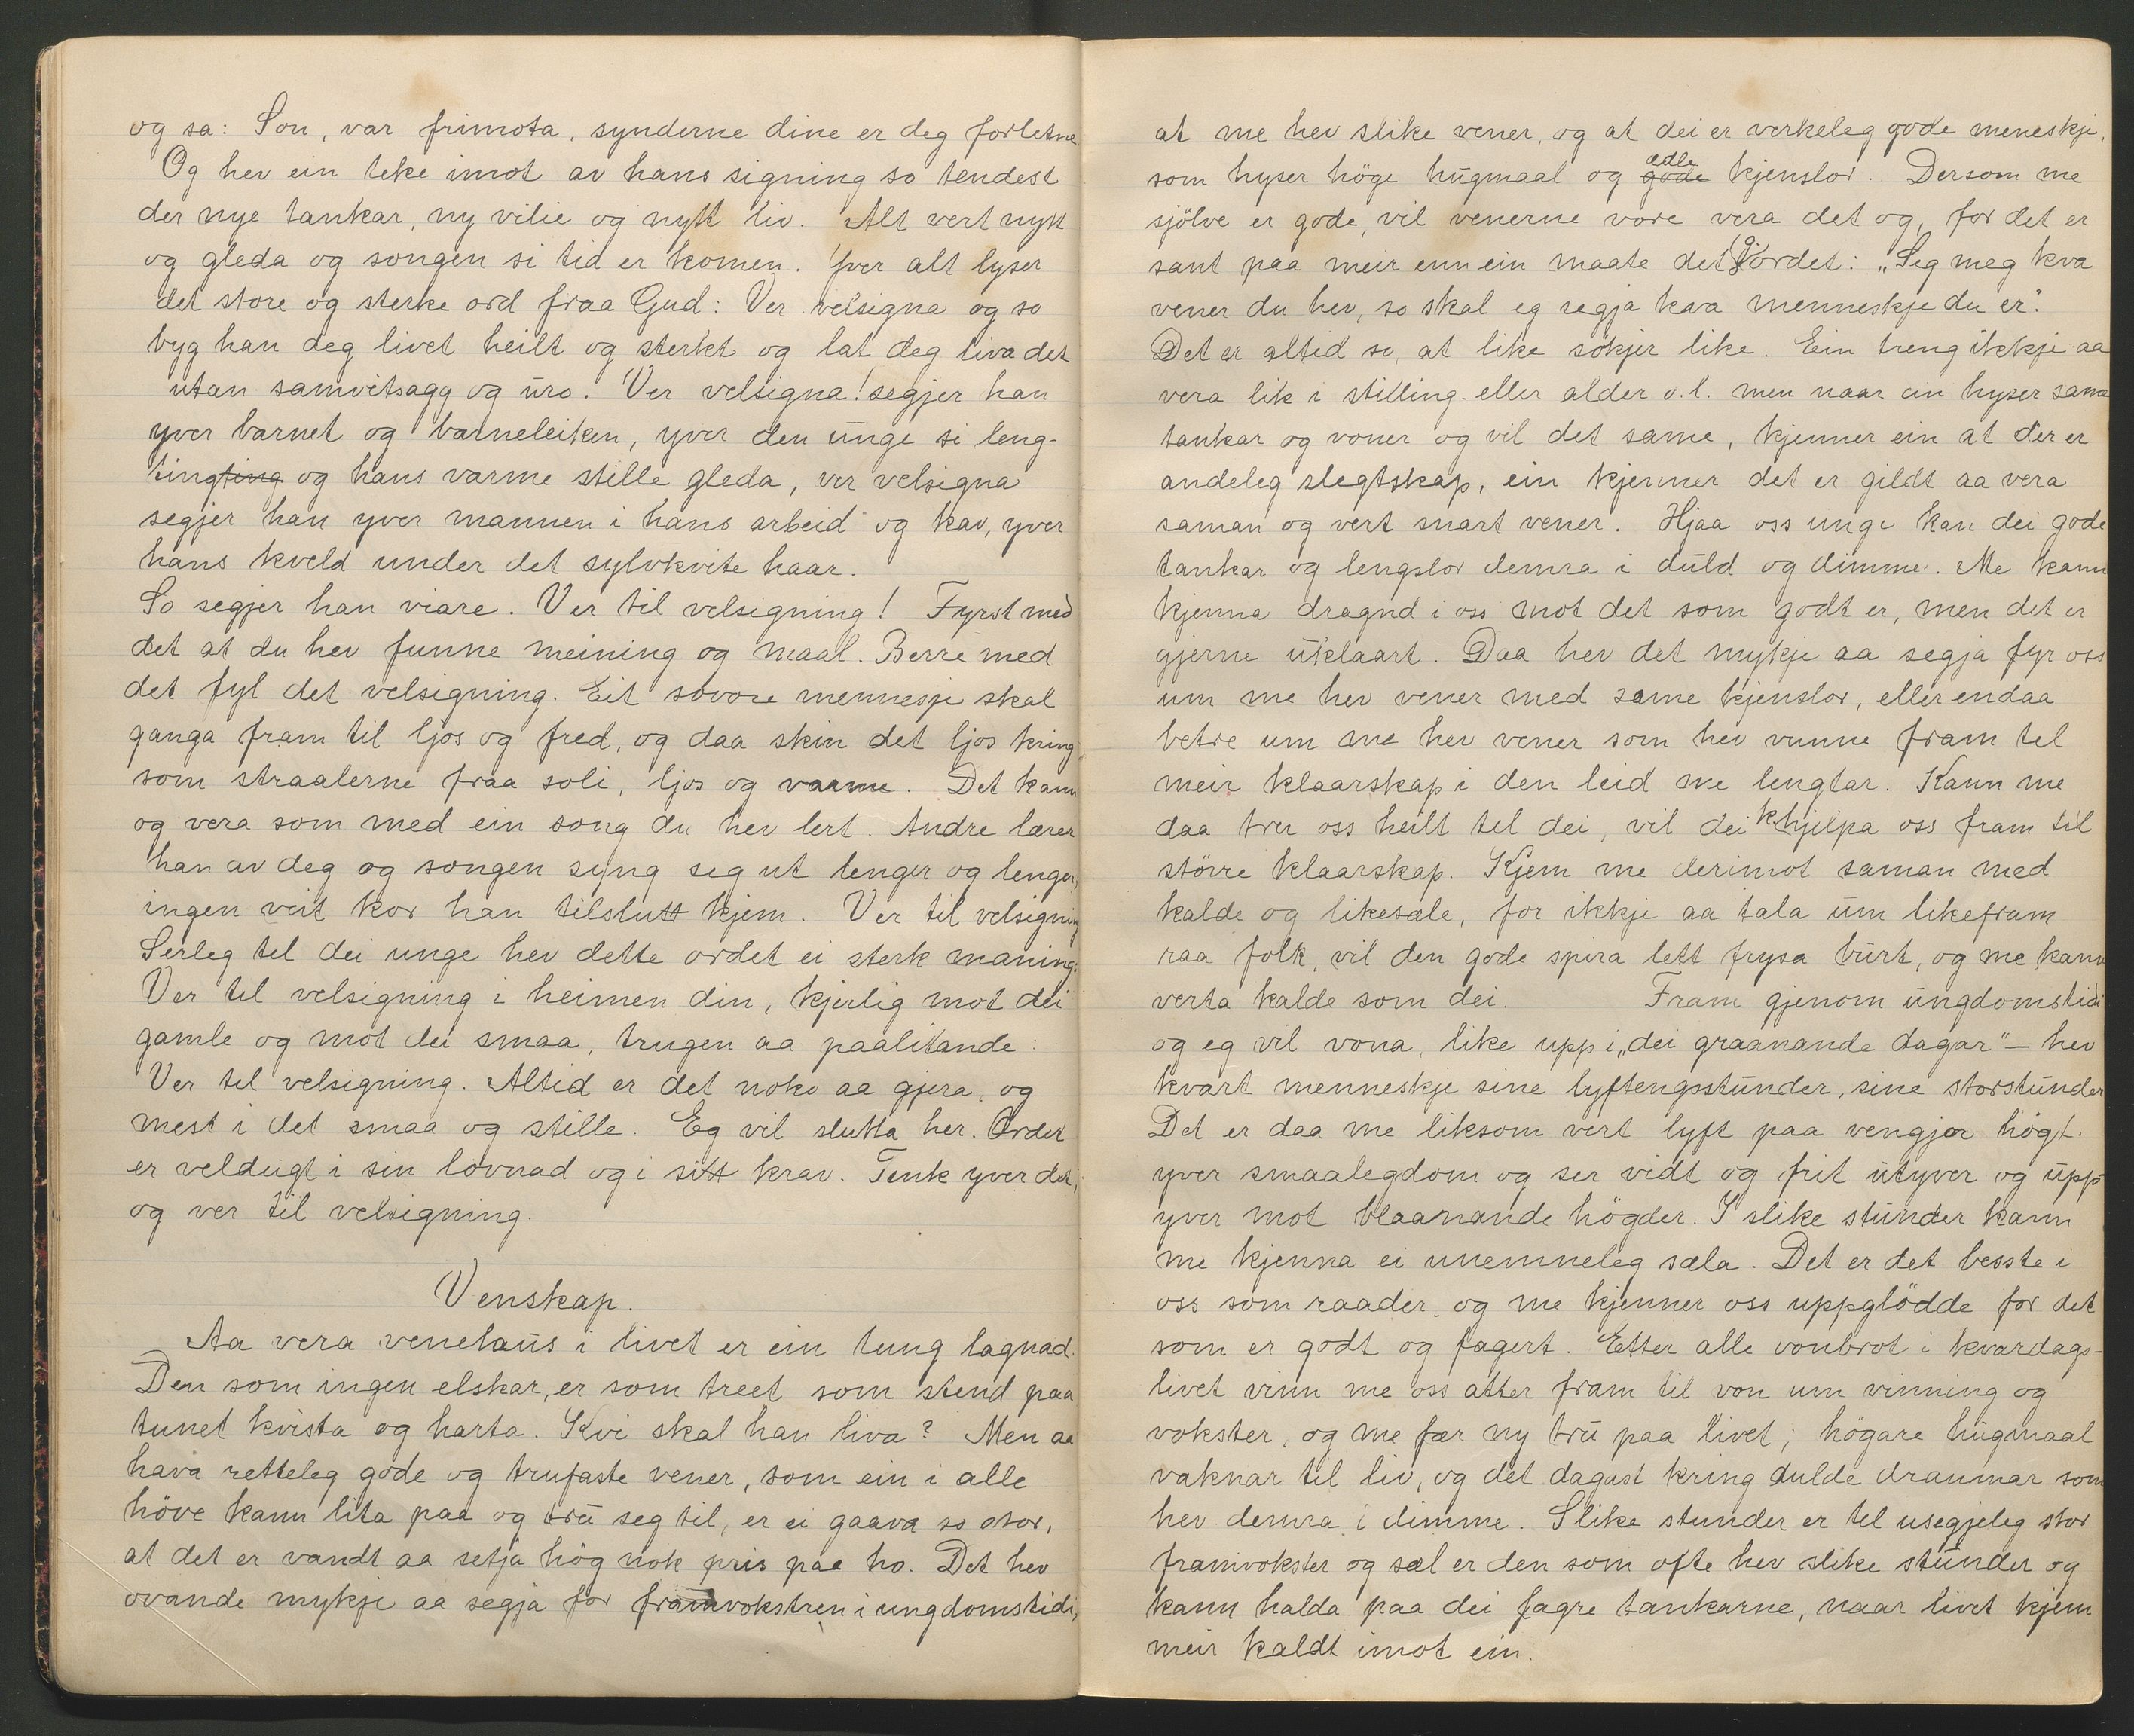 og sa: Son, var frimota, synderne dine er deg forletne
Og hev ein teke imot av hans signing so tendest
der nye tankar, ny vilie og nytt liv. Alt vert nytt
og gleda og songen si tid er komen. Yver alt lyser
det store og sterke ord fraa Gud: Ver velsigna og so
byg han deg livet heilt og sterkt og lat deg liva det
utan samvitsagg og uro. Ver velsigna! segjer han
yver barnet og barneleiken, yver den unge si leng-
tingting og hans varme stille gleda, ver velsigna
segjer han yver mannen i hans arbeid og kav, yver
hans kveld under det sylvkvite haar.
So segjer han viare. Ver til velsigning! Fyrst med
det at du hev funne meining og maal. Berre med
det fyl det velsigning. Eit sovore mennesje skal
ganga fram til ljos og fred, og daa skin det ljos kring,
som straalerne fraa soli, ljos og varme. Det kann
og vera som med ein song du hev lert. Andre lærer
han av deg og songen syng seg ut lenger og lenger,
ingen veit kor han tilslutt kjem. Ver til velsigning
Serleg tel dei unge hev dette ordet ei sterk maning:
Ver tel velsigning i heimen din, kjerlig mot dei
gamle og mot dei smaa, trugen aa paalitande:
Ver tel velsigning. Altid er det noko aa gjera, og
mest i det smaa og stille. Eg vil slutta her. Ordet
er veldugt i sin lovnad og i sitt krav. Tenk yver det,
og ver til velsigning.
Venskap.
Aa vera venelaus i livet er ein tung lagnad.
Den som ingen elskar, er som treet som stend paa
tunet kvista og harta. Kvi skal han liva? Men aa
hava retteleg gode og trufaste vener, som ein i alle
höve kann lita paa og tru seg til, er ei gaava so stor,
at det er vandt aa setja hög nok pris paa ho. Det hev
ovande mykje aa segja for framvokstren i ungdomstidi,
at me hev slike vener, og at dei er verkeleg gode meneskje,
som hyser höge hugmaal og gode edle kjenslor. Dersom me
sjölve er gode, vil venerne vore vera det og, for det er
sant paa meir enn ein maate det g. ordet: „Seg meg kva
vener du hev, so skal eg segja kva menneskje du er."
Det er altid so, at like sökjer like. Ein treng ikkje aa
vera lik i stilling eller alder o.l. men naar ein hyser same
tankar og voner og vil det same, kjenner ein at der er
andeleg slegtskap, ein kjenner det er gildt aa vera
saman og vert snart vener. Hjaa oss unge kan dei gode
tankar og lengslor demra i duld og dimme. Me kann
kjenna dragnd i oss mot det som godt er, men det er
gjerne uklaart. Daa hev det mykje aa segja fyr oss
um me hev vener med same kjenslor, eller endaa
betre um me hev vener som hev vunne fram tel
meir klaarskap i den leid me lengtar. Kann me
daa tru oss heilt tel dei, vil dei k. hjelpa oss fram til
större klaarskap. Kjem me derimot saman med
kalde og likesæle, for ikkje aa tala um likefram
raa folk, vil den gode spira lett frysa burt, og me kann
verta kalde som dei. Fram gjenom ungdomstidi
og eg vil vona, like upp i „dei graanande dagar" – hev
kvart menneskje sine lyftengsstunder, sine storstunder
Det er daa me liksom vert lyft paa vengjor högt
yver smaalegdom og ser vidt og frit utyver og upp
yver mot blaanande högder. I slike stunder kann
me kjenna ei unemneleg sæla. Det er det besste i
oss som raader, og me kjenner oss uppglödde for det
som er godt og fagert. Etter alle vonbrot i kvardags-
livet vinn me oss atter fram til von um vinning og
vokster, og me fær ny tru paa livet; högare hugmaal
vaknar til liv, og det dagast kring dulde draumar som
hev demra i dimme. Slike stunder er tel usegjeleg stor
framvokster og sæl er den som ofte hev slike stunder og
kann halda paa dei fagre tankarne, naar livet kjem
meir kaldt imot ein.